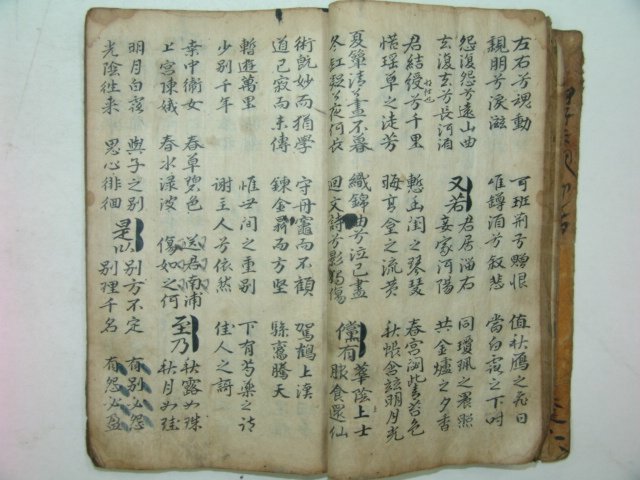 左右兮魂動 可班荊予贈恨 值秋鴈之飛日
親朋兮淚滋 惟罇酒兮叙悲 當白露之下時
怨復怨兮遠山曲 又若 君居淄右 同瓊珮之晨照
去復去兮長河湄 妾家河陽 共金爐之夕香
君結綬兮千里 慙幽閨之琴瑟 春宮閟此青苔色
惜瑤草之徒芳 晦高堂之流黃 秋帳含玆明月光
夏簟淸兮晝不暮 織錦曲兮泣已盡 儻有 華陰上士
冬釭凝兮夜何長 回文詩兮影獨傷 服食還仙
術旣妙而猶學 守丹竈而不顧 駕鶴上漢
道已寂而未傳 鍊金鼎而方堅 驂鸞騰天
暫遊萬里 惟世間之重別 下有芍藥之詩
少別千年 謝主人兮依然 佳人之謌
桑中衛女 春草碧色 送君南浦 至乃 秋露如珠
上宮陳娥 春水淥波 傷如之何 秋月如珪
明月白露 與子之別 是以 別方不定 有別必怨
光陰往来 思心徘徊 別理千名 有怨必盈